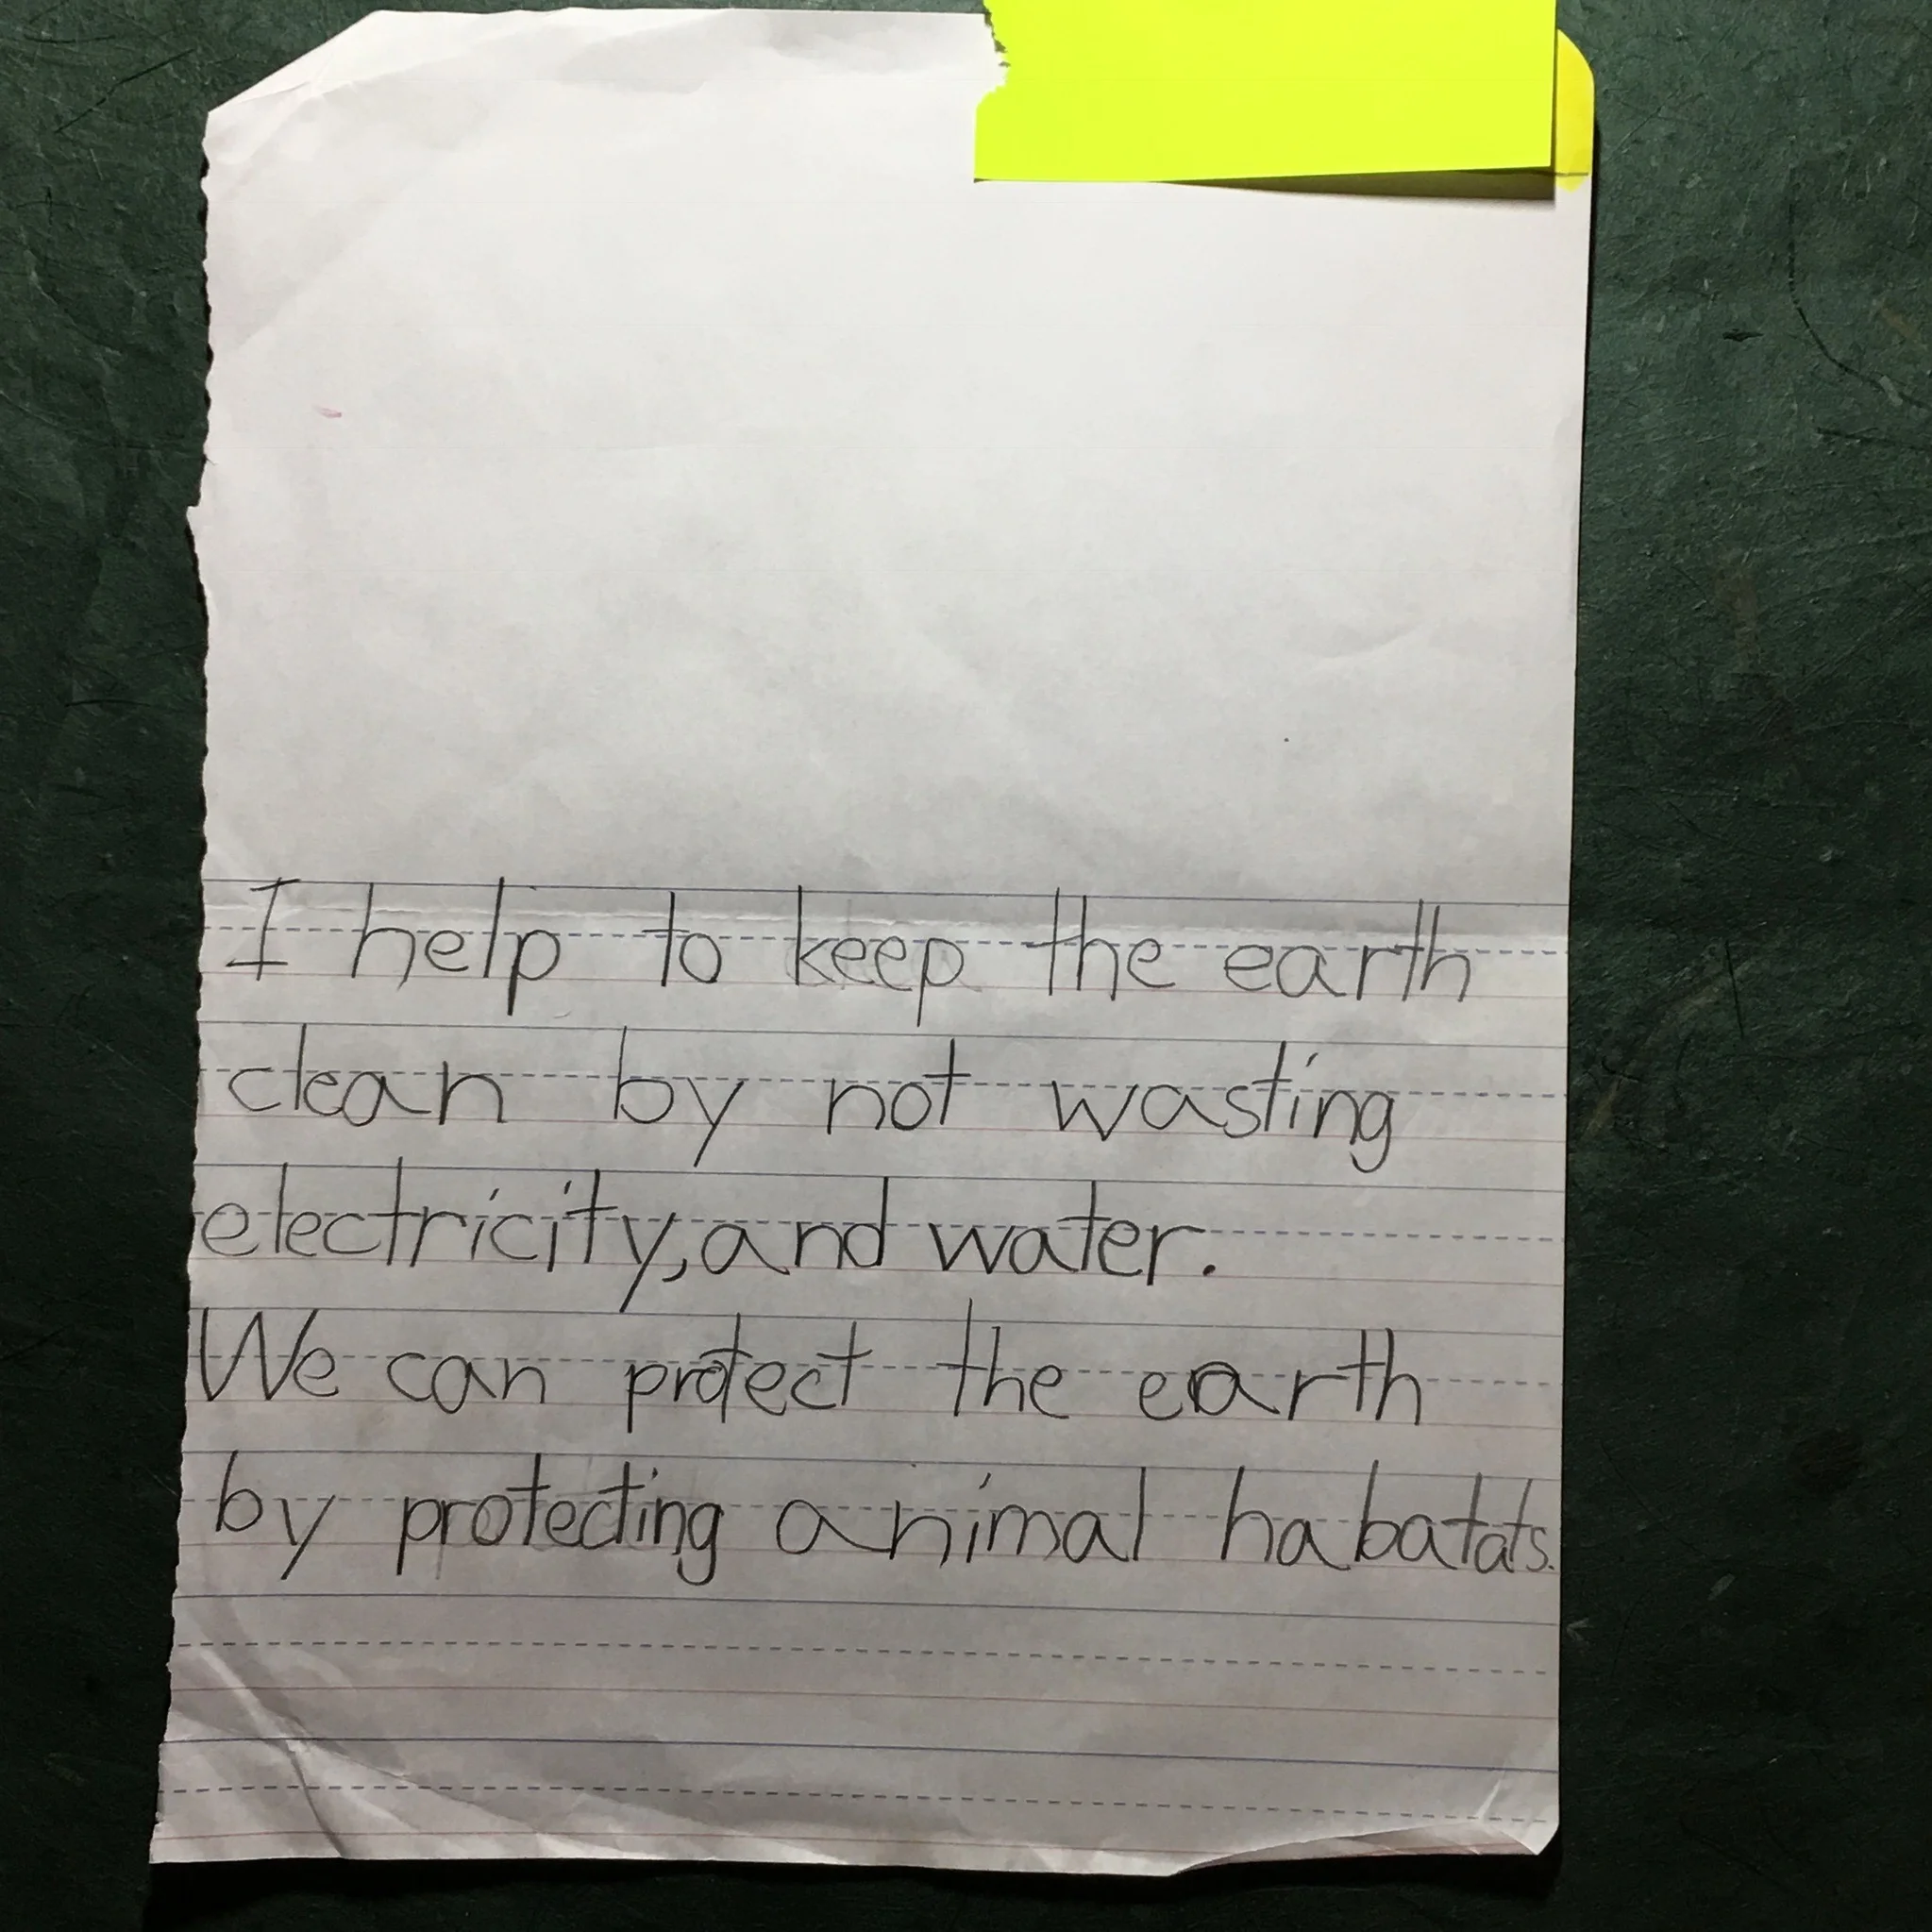 I help to keep the earth
clean by not wasting
electricity,and water.
We can protect the earth
by protecting animal habatats.